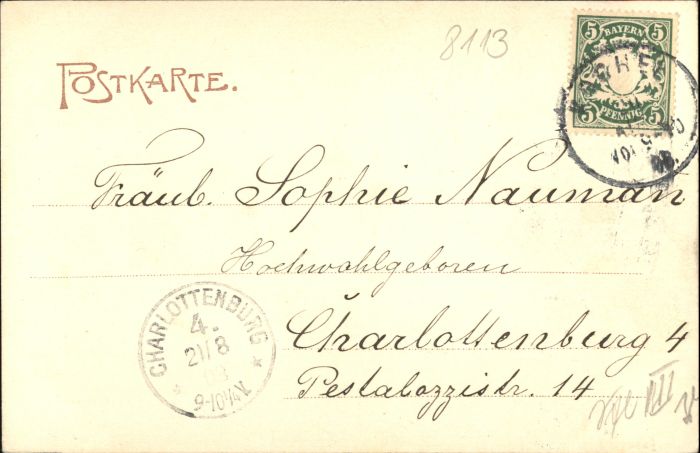 8113
POSTKARTE.
5 BAYERN 5
5 PFENNIG 5
Fräul. Sophie Nauman
Hochwohlgeboren
Charlottenburg 4
Pestalozzistr. 14
CHARLOTTENBURG
4.
21/8
9-10¼V.